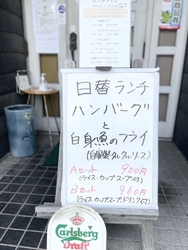 日替ランチ
ハンバーグ
と
白身魚のフライ
(自家製タルタルソース)
Aセット 900円
(ライス・カップスープ付)
Bセット 960円
(ライス・カップスープ・ドリンク付)
Carlsberg
Draft